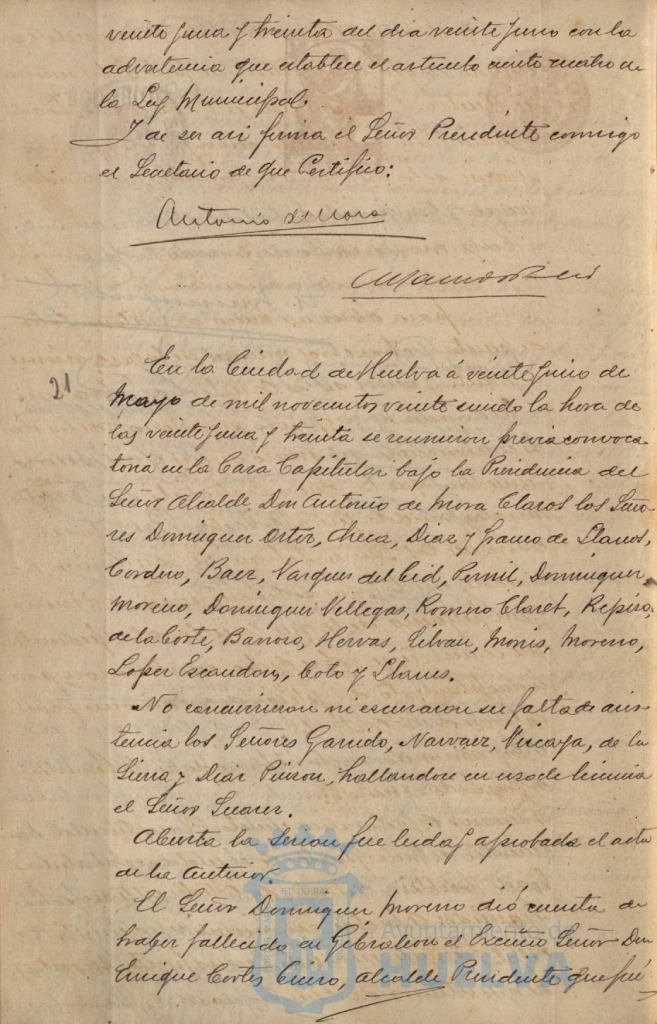 veinte y una y treinta del dia veinte y uno con la
advertencia que establece el articulo ciento cuatro de
la Ley Municipal.
Y de ser asi firma el Señor Presidente conmigo
el Secretario de que Certifico:
Antonio de Mora
21
En la Ciudad de Huelva á veinte y uno de
Mayo de mil novecientos veinte siendo la hora de
las veinte y una y treinta se reunieron previa convoca
toria en la Casa Capitular bajo la Presidencia del
Señor Alcalde Don Antonio de Mora Claros los Seño-
res Dominguez Ortiz, Checa, Diaz y Franco de Llanos,
Cordero, Baez, Vazquez del Cid, Pernil, Dominguez
Moreno, Dominguez Villegas, Romero Claret, Repiso,
de la Corte, Barroso, Hervas, Silvan, Monis, Moreno,
Lopez Escandon, Coto y Llanes.
No concurrieron ni escusaron su falta de asis-
tencia los Señores Garrido, Narvaez, Vizcaya, de la
Sierra y Diaz Pinzon, hallandose en uso de licencia
el Señor Suarez.
Abierta la sesion fue leida y aprobada el acta
de la anterior.
El Señor Dominguez Moreno dió cuenta de
haber fallecido en Gibraleon el Excmo Señor Don
Enrique Cortes, alcalde Presidente que fué
Ayuntamiento de
HUELVA